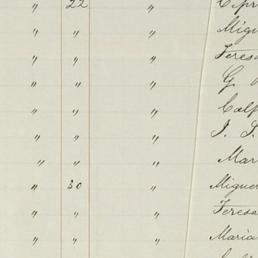 " 22 " Cipr
" " Migu
" " Teresa
" " G.
" " Calp
" " J. S.
" " Mar
" 30 " Miguel
" " Teresa
" " Maria